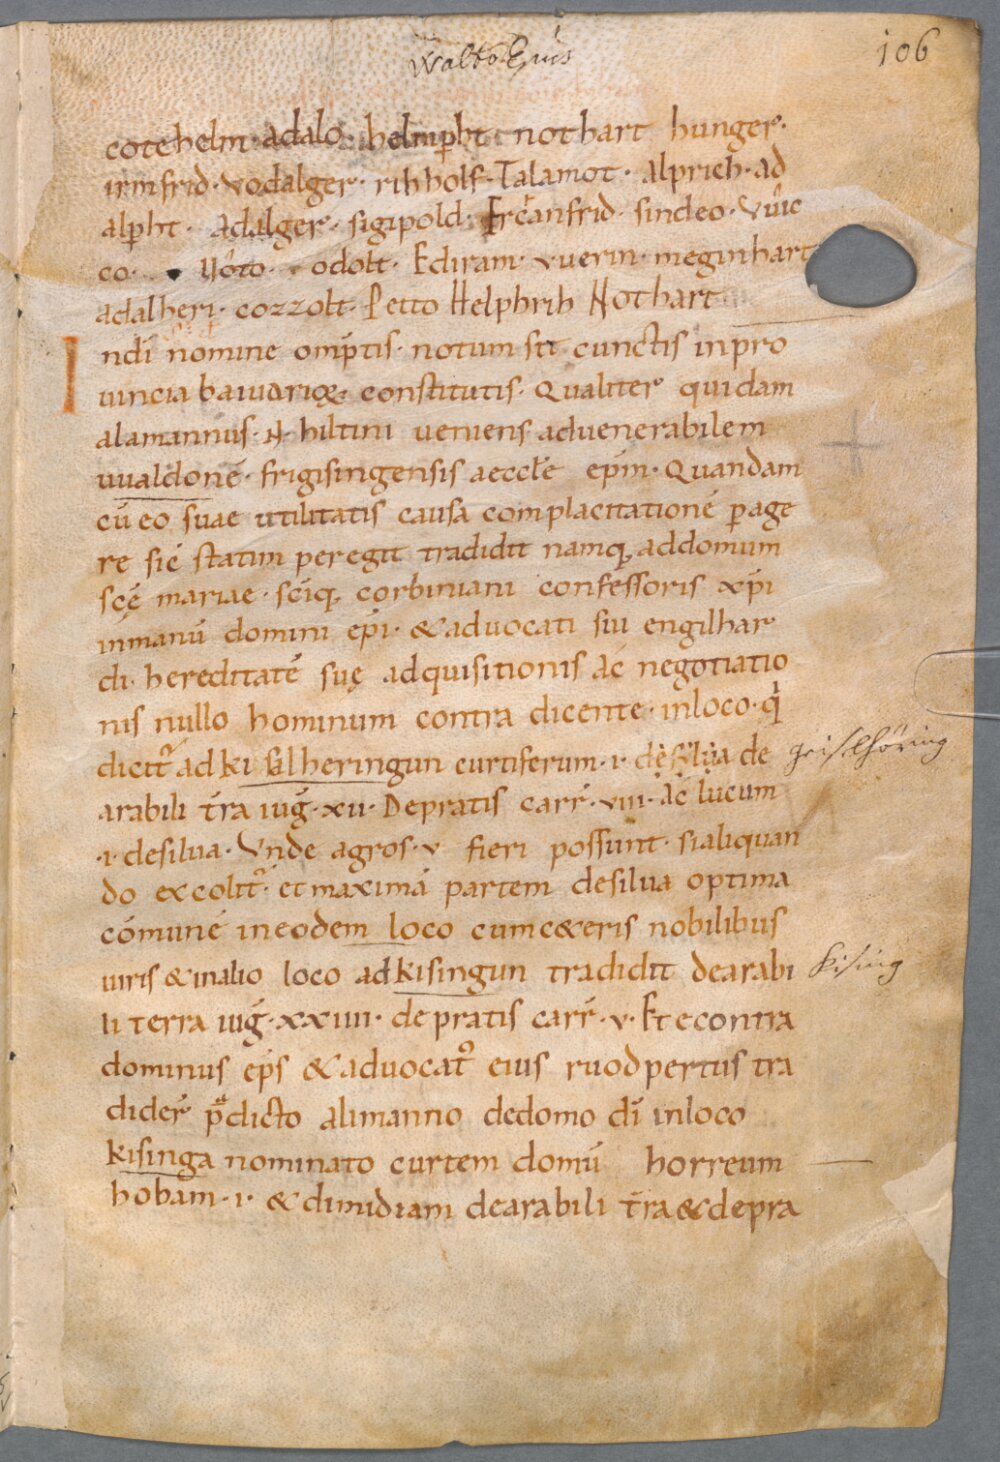 Walto Epūs
106
cotehelm · adalo · helmp̄ht nothart hunger ·
irmfrid · vodalger · rihholf · Talamot · alprich · ad
alp̄ht · adalger · sigipold · Ercanfrid · sindeo · vuic
co · Uoto · odolt · Ediram · vuerin · meginhart
adalheri · cozzolt · Petto Helphrih Nothart
Indī nomine omp̄tis · notum sit cunctis inpro
uincia baiuuariȩ · constitutis · Qualiter quidam
alamannus · N · hiltini ueniens aduenerabilem
uualdonē · frigisingensis aeccłe ep̄m · Quandam
cū eo suae utilitatis causa complacitationē ꝑage
re sic̄ statim peregit tradidit namq; addomum
sc̄ę mariae · sc̄iq; corbiniani confessoris xp̄i
inmanū domini ep̄i · &aduocati sui engilhar
di · hereditatē suę adquisitionis ac̄ negotiatio
nis nullo hominum contra dicente · inloco · q̇
dicit᷑ adkisalheringun curtiferum · i · desilua de
geiselhöring
arabili t̄ra iug̅ · xii · Depratis carr̄ · viii · ac̄ lucum
· i · desilua · Vnde agros · v fieri possunt · sialiquan
do excolit᷑ · et maximā partem desilua optima
cōmunē ineodem loco cumc&eris nobilibus
uiris &inalio loco adkisingun tradidit dearabi
Kising
li terra iug̅ · xxiiii · depratis carr̄ · v · Et econtra
dominus ep̄s &aduocat᷒ eius ruodpertus tra
dider̄ p̄dicto alimanno dedomo dī inloco
kisinga nominato curtem domū horreum
hobam · i · &dimidiam dearabili t̄ra &depra